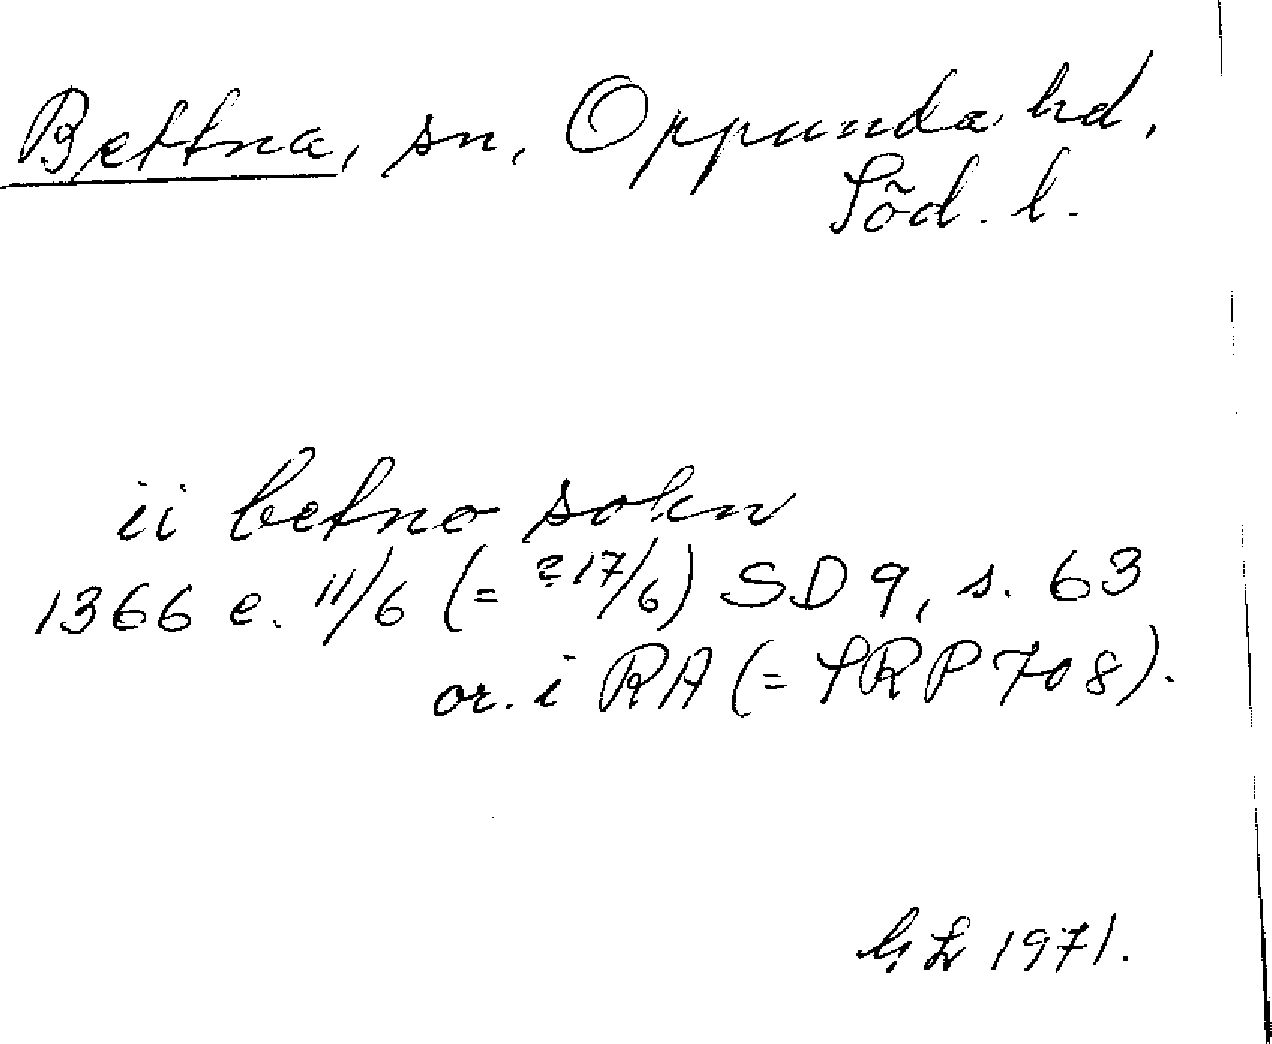 Bettna, sn, Oppunda hd,
Söd. l.
ii betno sokn
1366 e. 11/6 (= ?17/6) SD 9, s. 63
or. i RA (= SRP 708).
1971.